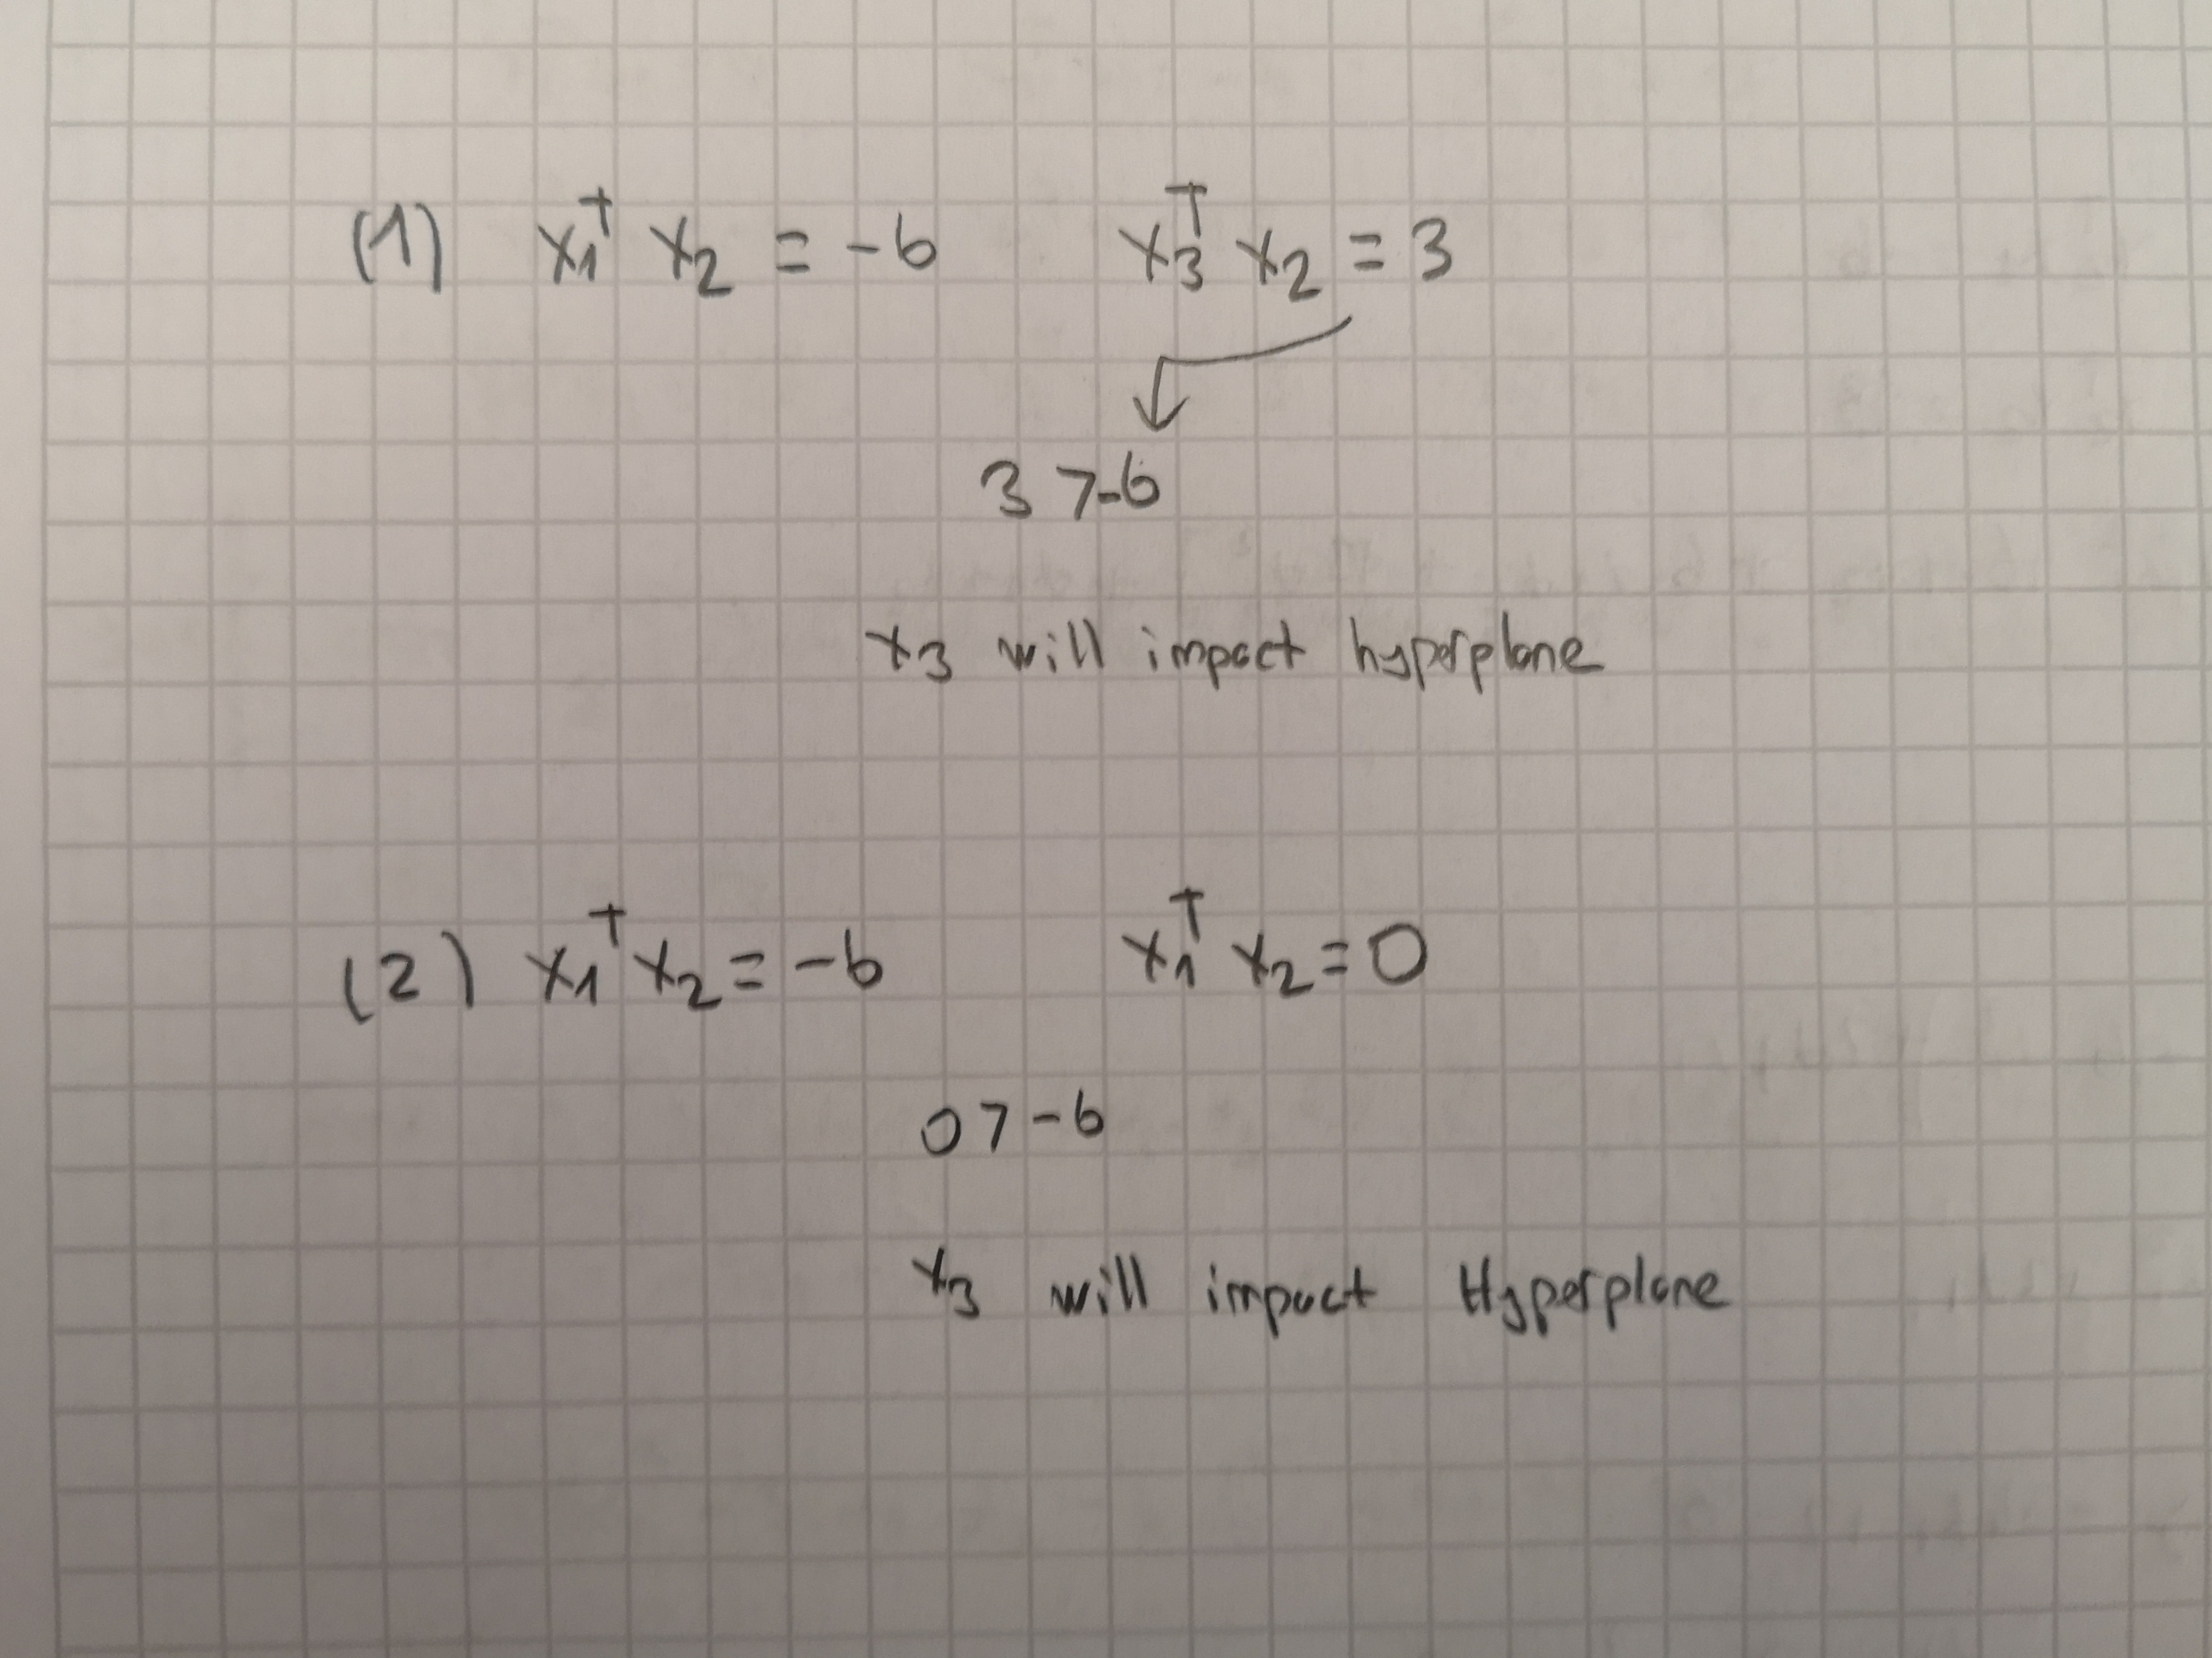 (1) x₁ᵀ x₂ = -6 x₃ᵀ x₂ = 3
3 > -6
x₃ will impact hyperplane
(2) x₁ᵀ x₂ = -6 x₁ᵀ x₂ = 0
0 > -6
x₃ will impact Hyperplane